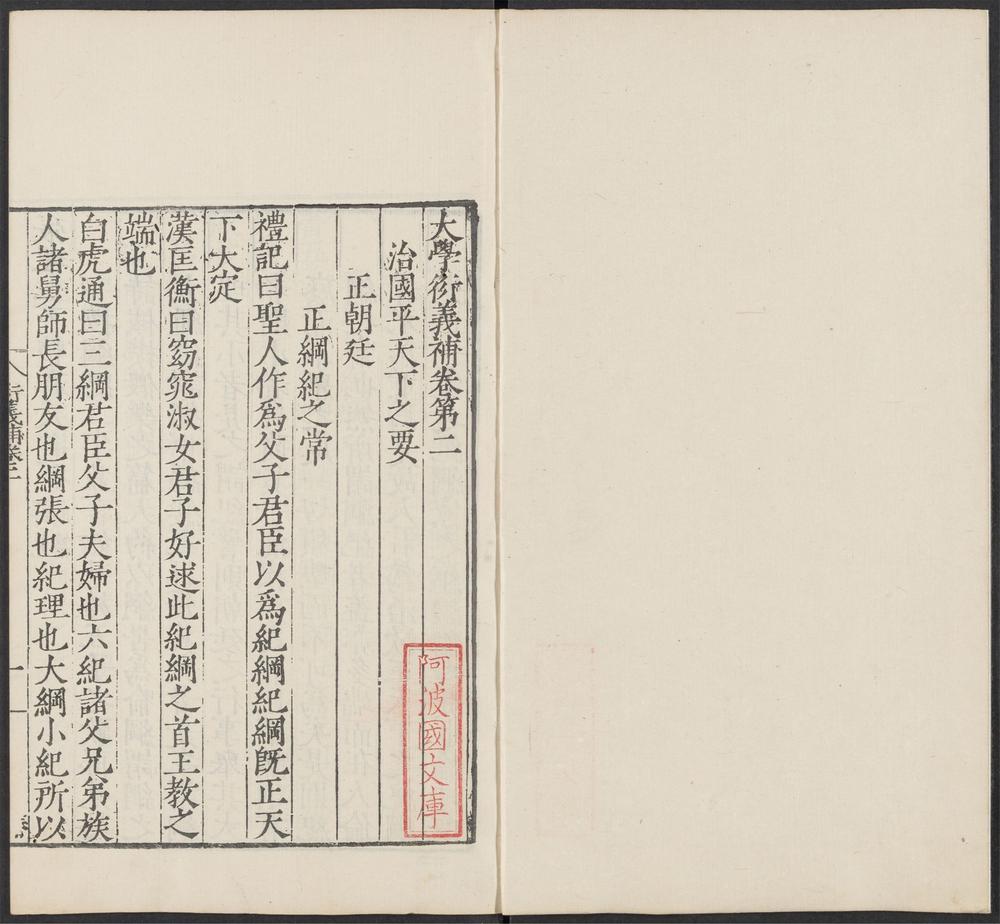 大學衍義補卷第二
治國平天下之要
正朝廷
正綱紀之常
禮記曰聖人作爲父子君臣以爲紀綱紀綱旣正天
下大定
漢匡衡曰窈窕淑女君子好逑此紀綱之首王教之
端也
白虎通曰三綱君臣父子夫婦也六紀諸父兄弟族
人諸舅師長朋友也綱張也紀理也大綱小紀所以
衍義補卷二
一
阿波國文庫